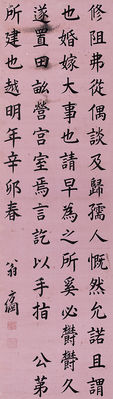 修阻弗從偶談及歸孺人慨然允諾且謂
也婚嫁大事也請早為之所奚必鬱鬱久
遂置田畝營宮室焉言訖以手指　公第
所建也越明年辛卯春
翁